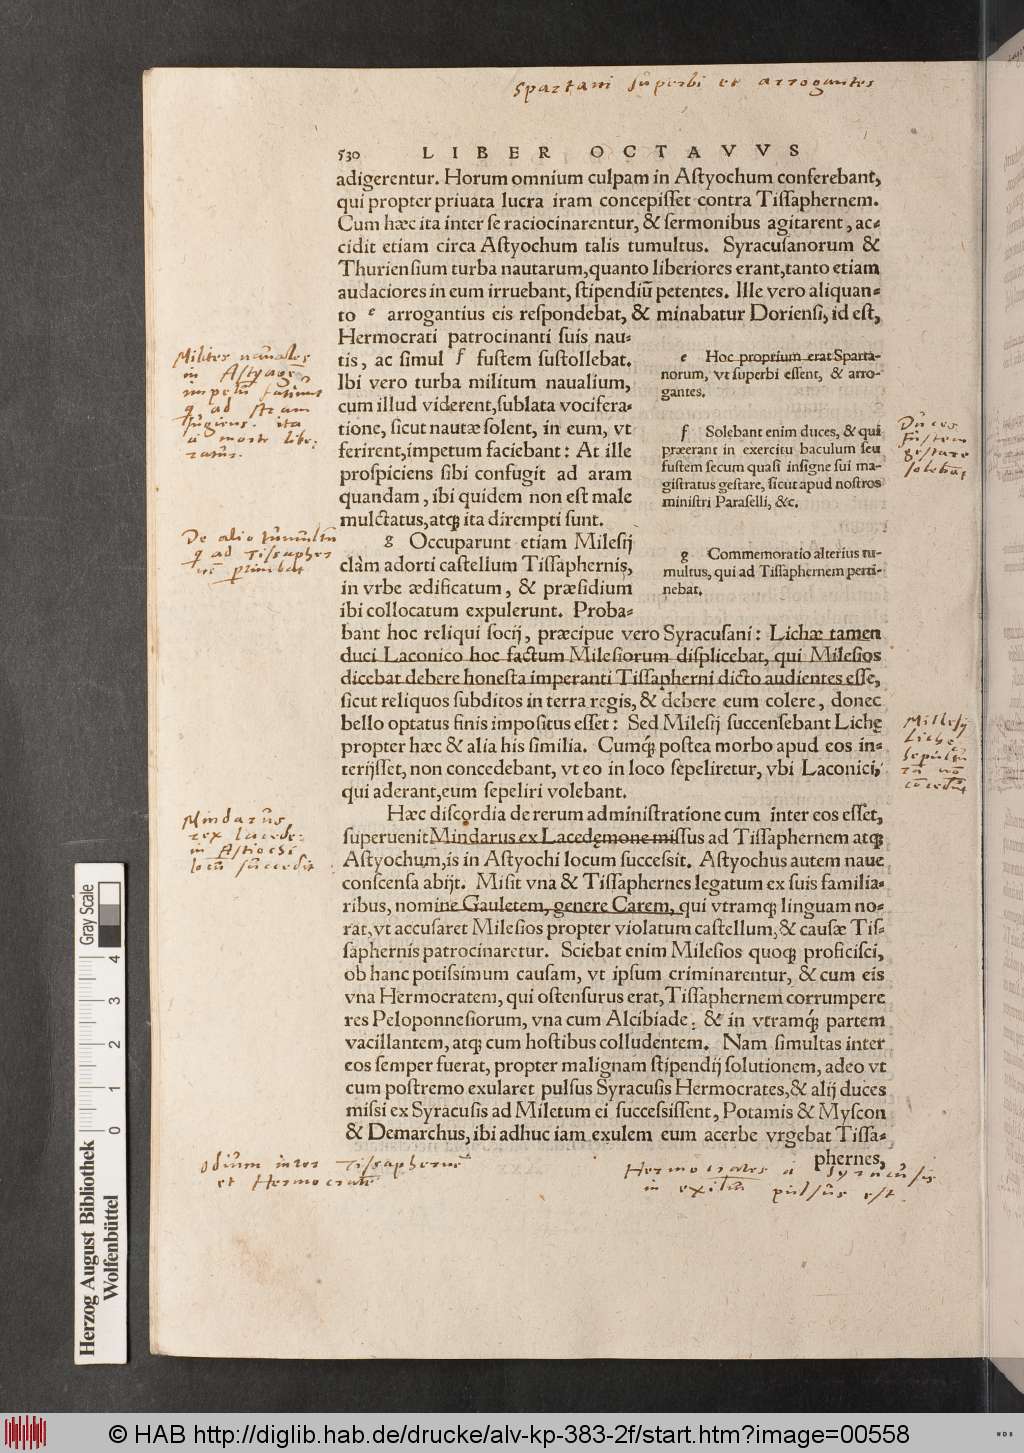 Spartani superbi et arrogantes
530 LIBER OCTAVVS
adigerentur. Horum omnium culpam in Astyochum conferebant,
qui propter priuata lucra iram concepisset contra Tissaphernem.
Cum hæc ita inter se raciocinarentur, & sermonibus agitarent, ac-
cidit etiam circa Astyochum talis tumultus. Syracusanorum &
Thuriensium turba nautarum, quanto liberiores erant, tanto etiam
audaciores in eum irruebant, stipendiũ petentes. Ille vero aliquan-
to e arrogantius eis respondebat, & minabatur Doriensi, id est,
Hermocrati patrocinanti suis nau-
tis, ac simul f fustem sustollebat.
Ibi vero turba militum naualium,
cum illud viderent, sublata vocifera-
tione, sicut nautæ solent, in eum, vt
ferirent, impetum faciebant: At ille
prospiciens sibi confugit ad aram
quandam, ibi quidem non est male
mulctatus, atq; ita dirempti sunt.
g Occuparunt etiam Milesij
clàm adorti castellum Tissaphernis,
in vrbe ædificatum, & præsidium
ibi collocatum expulerunt. Proba-
bant hoc reliqui socij, præcipue vero Syracusani: Lichæ tamen
duci Laconico hoc factum Milesiorum displicebat, qui Milesios
dicebat debere honesta imperanti Tissapherni dicto audientes esse,
sicut reliquos subditos in terra regis, & debere eum colere, donec
bello optatus finis impositus esset: Sed Milesij succensebant Lichę
propter hæc & alia his similia. Cumq́; postea morbo apud eos in-
terijsset, non concedebant, vt eo in loco sepeliretur, vbi Laconici,
qui aderant, eum sepeliri volebant.
Hæc discordia de rerum administratione cum inter eos esset,
superuenit Mindarus ex Lacedęmone missus ad Tissaphernem atq;
Astyochum, is in Astyochi locum successit. Astyochus autem naue
conscensa abijt. Misit vna & Tissaphernes legatum ex suis familia-
ribus, nomine Gauletem, genere Carem, qui vtramq; linguam no-
rat, vt accusaret Milesios propter violatum castellum, & causæ Tis-
saphernis patrocinaretur. Sciebat enim Milesios quoq; proficisci,
ob hanc potissimum causam, vt ipsum criminarentur, & cum eis
vna Hermocratem, qui ostensurus erat, Tissaphernem corrumpere
res Peloponnesiorum, vna cum Alcibiade: & in vtramq́; partem
vacillantem, atq; cum hostibus colludentem. Nam simultas inter
eos semper fuerat, propter malignam stipendij solutionem, adeo vt
cum postremo exularet pulsus Syracusis Hermocrates, & alij duces
missi ex Syracusis ad Miletum ei successissent, Potamis & Myscon
& Demarchus, ibi adhuc iam exulem eum acerbe vrgebat Tissa-
phernes,
e Hoc proprium erat Sparta-
norum, vt superbi essent, & arro-
gantes.
f Solebant enim duces, & qui
præerant in exercitu baculum seu
fustem secum quasi insigne sui ma-
gistratus gestare, sicut apud nostros
ministri Paraselli, &c.
g Commemoratio alterius tu-
multus, qui ad Tissaphernem perti-
nebat.
Milites nauales
in Astyagẽ
impetũ faciunt
q ad aram
fugiens. ita
a morte libe-
ratur.
De alio tumultu
q ad Tissapher
nẽ ptinebat
Mindarus
rex Lacede-
in Astiochi
locũ succedit
Duces
fustem
gestare
solebãt
Milesij
Liche
sepultu
rã nõ
cõcedũt
odium inter Tissaphernẽ
et Hermocratẽ
Hermocrates a Syracusis
in exiliũ pulsus est.
Gray Scale
0 1 2 3 4
Herzog August Bibliothek
Wolfenbüttel
© HAB http://diglib.hab.de/drucke/alv-kp-383-2f/start.htm?image=00558